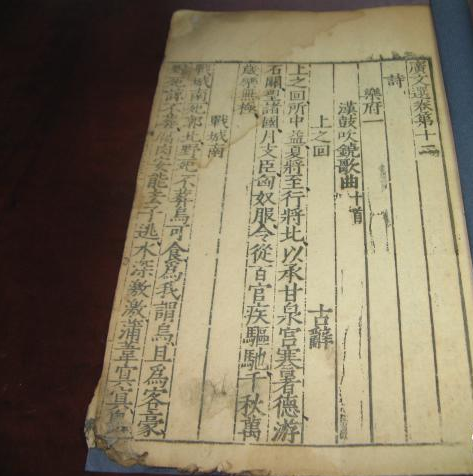 廣文選卷第十二
詩
樂府一
漢鼓吹鐃歌曲十首
上之回 古辭
上之回所中益夏將至行將北以承甘泉宮寒暑德游
石關望諸國月支臣匈奴服令從百官疾驅馳千秋萬
歲樂無極
戰城南
戰城南死郭北野死不葬烏可食爲我謂烏且爲客豪
野死諒不葬腐肉安能去子逃水深激激蒲葦冥冥